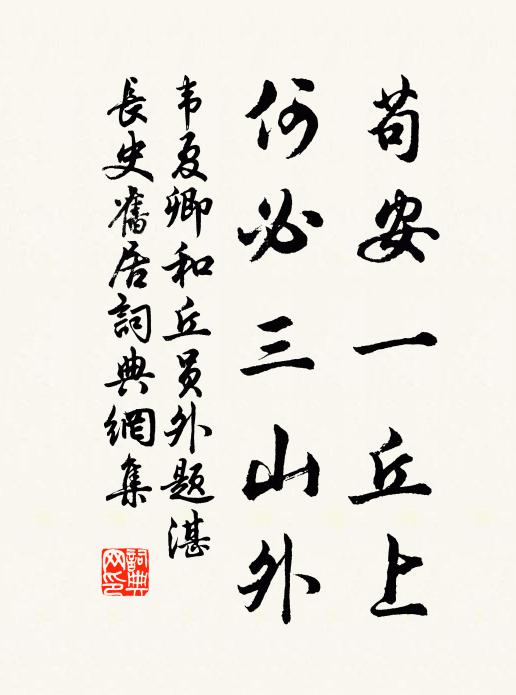 苟安一丘上
何必三山外
韦夏卿和丘员外题湛
長史舊居詞典網集
詞典
网印